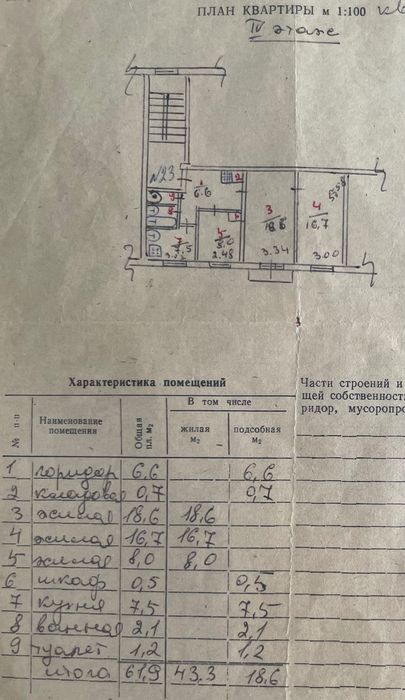 ПЛАН КВАРТИРЫ м 1:100 кв
IV этаже
№23
1
6.6
2
9
8
6
3
18.6
4
16,7
7
7,5
5
8.0
2.48
3.34
3.00
5.58
Характеристика помещений
№ п п
Наименование помещения
Общая пл. м2
В том числе
жилая м2
подсобная м2
Части строений и
щей собственност
ридор, мусоропро
1 горидор 6,6 6,6
2 кладовая 0,7 0,7
3 жилая 18,6 18,6
4 жилая 16,7 16,7
5 жилая 8,0 8,0
6 шкаф 0,5 0,5
7 кухня 7,5 7,5
8 ванная 2,1 2,1
9 туалет 1,2 1,2
итога 61,9 43.3 18,6